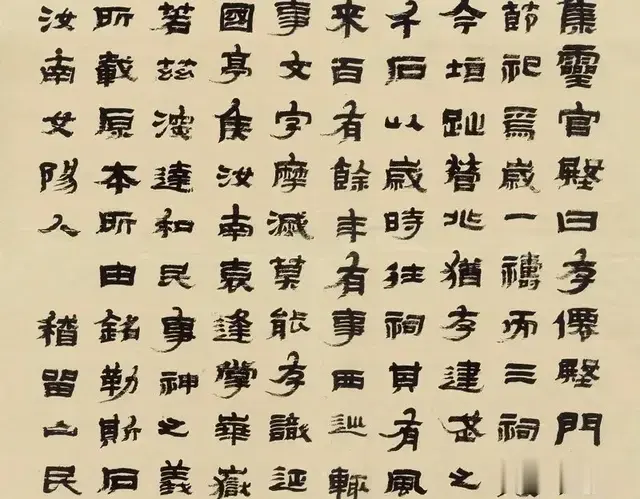 集靈官殿曰存僊殿門
節祀焉歲一禱而三祠
今垣趾營兆猶存建武之
千石以歲時往祠其有風
來百有餘年有事西巡輒
事文字摩滅莫能存識延
國亭侯汝南袁逢掌華嶽
若茲深達和民事神之義
所載原本所由銘勒斯石
汝南女陽人 稽留山民